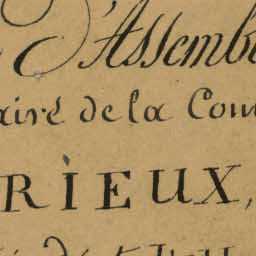 L'Assemb
aire de la Com
RIEUX,